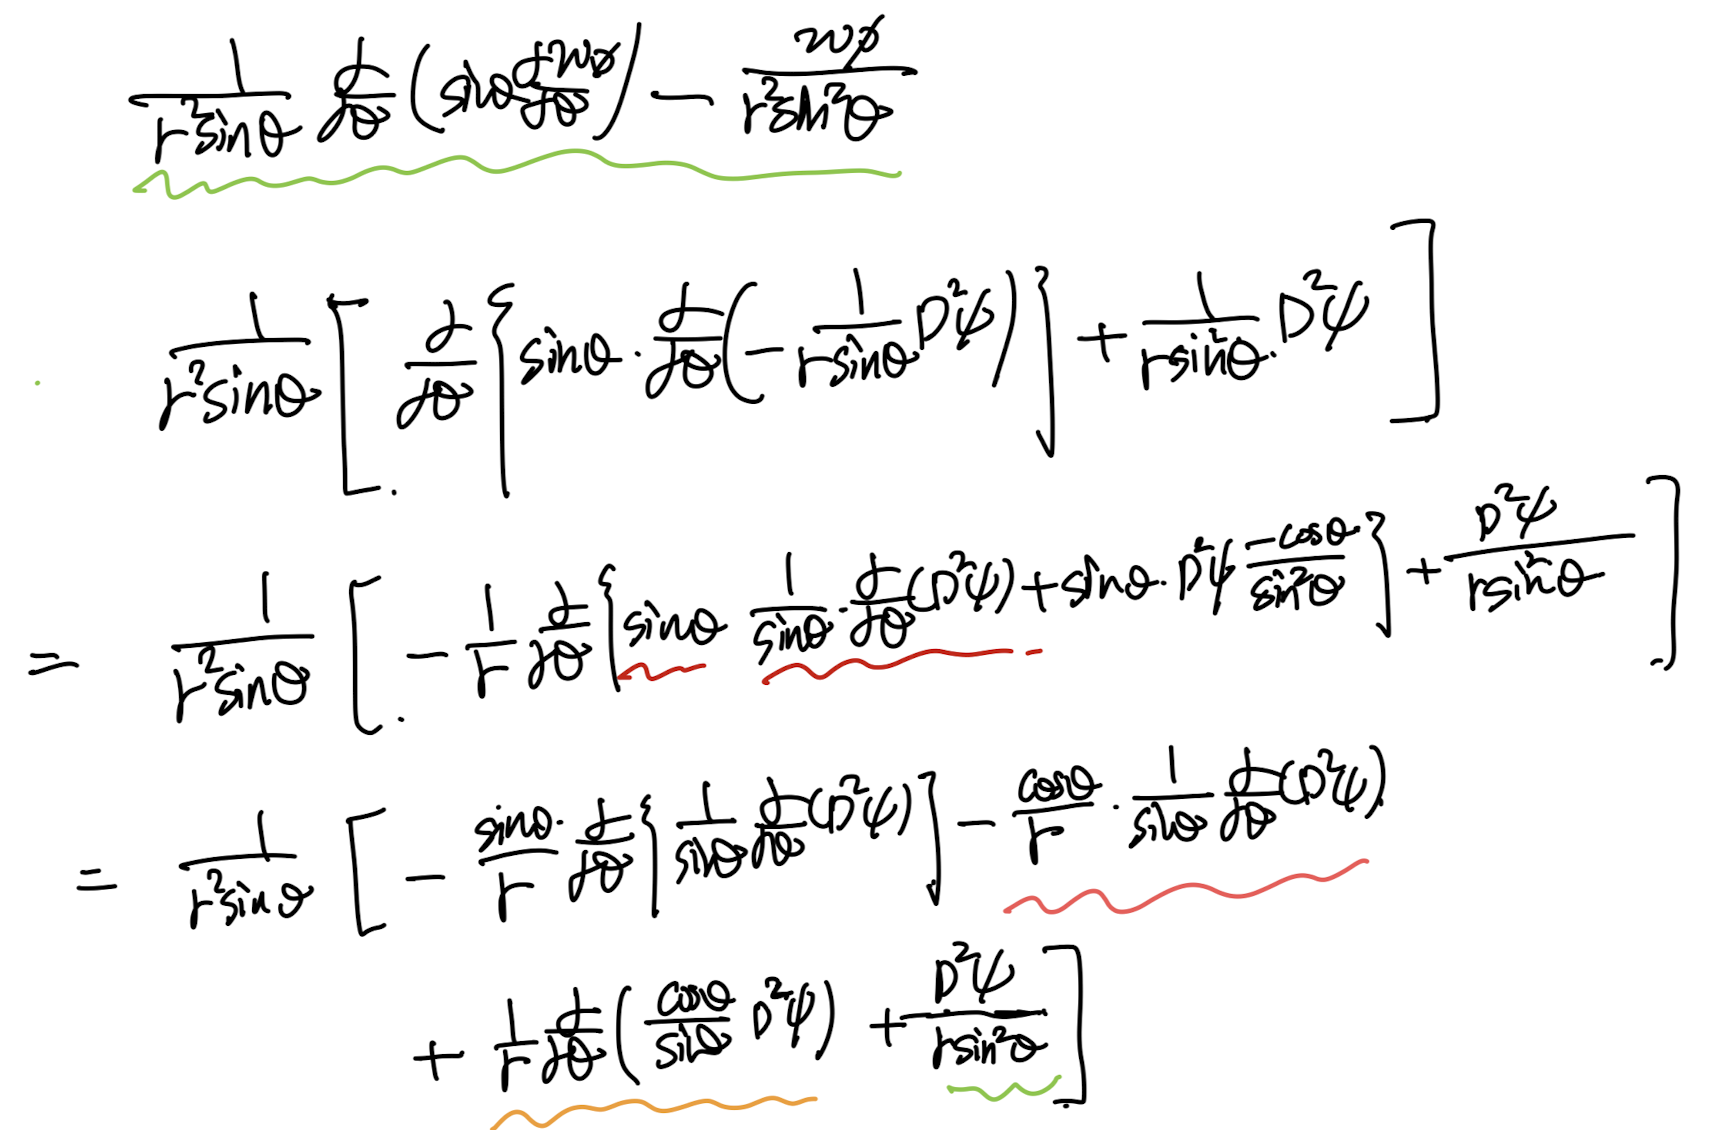 1/(r²sinθ) ∂/∂θ (sinθ ∂ωφ/∂θ) − ωφ/(r²sin²θ)
1/(r²sinθ) [ ∂/∂θ { sinθ · ∂/∂θ (− 1/(r sinθ) D²ψ) } + 1/(r sin²θ) · D²ψ ]
= 1/(r²sinθ) [ − 1/r ∂/∂θ { sinθ 1/sinθ · ∂/∂θ (D²ψ) + sinθ · D²ψ −cosθ/sin²θ } + D²ψ/(r sin²θ) ]
= 1/(r²sinθ) [ − sinθ/r · ∂/∂θ { 1/sinθ ∂/∂θ (D²ψ) } − cosθ/r · 1/sinθ ∂/∂θ (D²ψ)
+ 1/r ∂/∂θ ( cosθ/sinθ D²ψ ) + D²ψ/(r sin²θ) ]